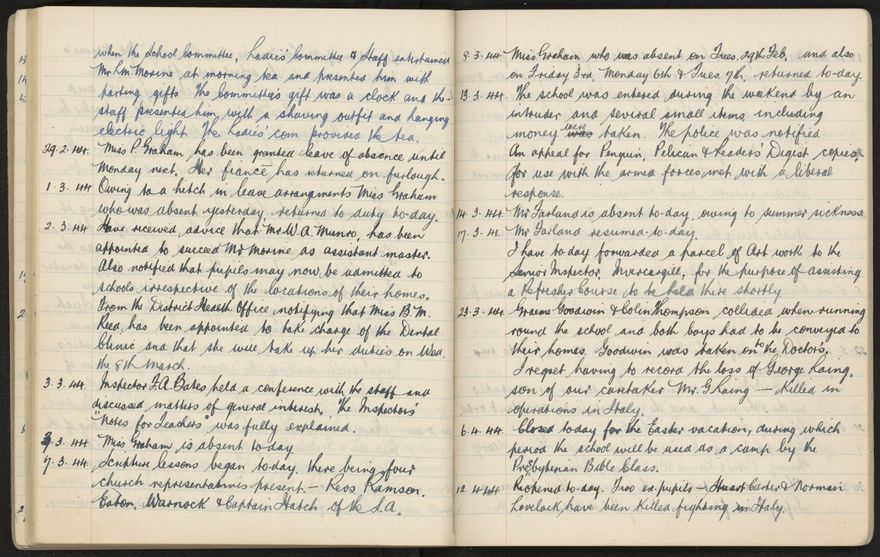 when the School Committee, Ladies' Committee & Staff entertained
Mr L.M. Morine at morning tea and presented him with
parting gifts. The Committee's gift was a clock and the
staff presented him with a shaving outfit and hanging
electric light. The Ladies' com. provided the tea.
29.2.44. Miss P. Graham has been granted leave of absence until
Monday next. Her fiancé has returned on furlough.
1.3.44 Owing to a hitch in leave arrangments Miss Graham
who was absent yesterday, returned to duty to-day.
2.3.44 Have received advice that Mr W.A. Munro, has been
appointed to succeed Mr Morine as assistant master.
Also notified that pupils may now be admitted to
schools irrespective of the locations of their homes.
From the District Health Office notifying that Miss B.M.
Reed, has been appointed to take charge of the Dental
Clinic and that she will take up her duties on Wed.
the 8th March.
3.3.44. Inspector F.A. Bates held a conference with the staff and
discussed matters of general interest. The Inspectors'
"Notes for Teachers" was fully explained.
3.44. Miss Graham is absent to-day
7.3.44. Scripture lessons began to-day, there being four
church representatives present. — Revs Ramson,
Eaton, Warnock & Captain Hatch of the S.A.
8.3.44 Miss Graham who was absent on Tues. 29th Feb, and also
on Friday 3rd, Monday 6th & Tues. 7th, returned to-day.
13.3.44. The school was entered during the weekend by an
intruder and several small items including
money were was taken. The police was notified
An appeal for Penguin, Pelican & Readers' Digest copies
for use with the armed forces met with a liberal
response.
14.3.44. Mr Farland is absent to-day, owing to summer sickness
17.3.44. Mr Farland resumed to-day.
I have to-day forwarded a parcel of Art work to the
Senior Inspector, Invercargill, for the purpose of assisting
a Refresher Course to be held there shortly
23.3.44. Graeme Goodwin & Colin Thompson, collided when running
round the school and both boys had to be conveyed to
their homes. Goodwin was taken on to the Doctor's.
I regret having to record the loss of George Laing,
son of our caretaker Mr. G Laing — Killed in
operations in Italy.
6.4.44 Closed to-day for the Easter vacation, during which
period the school will be used as a camp by the
Presbyterian Bible Class.
12.4.44 Reopened to-day. Two ex-pupils — Stuart Carter & Norman
Lovelock, have been killed fighting in Italy.